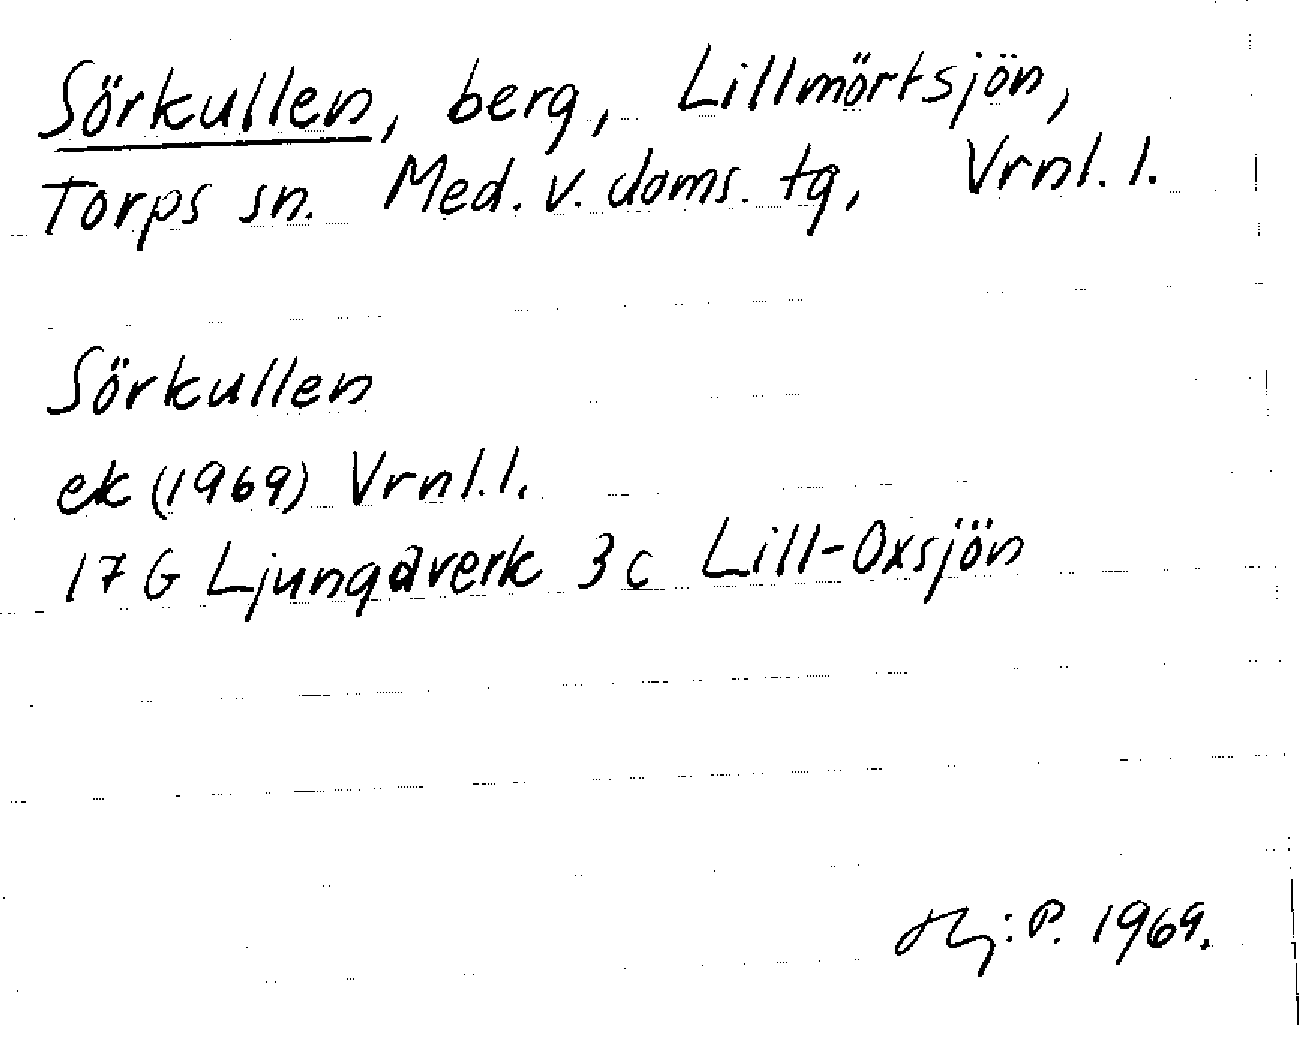 Sörkullen, berg, Lillmörtsjön,
Torps sn. Med. v. doms. tg, Vrnl. l.
Sörkullen
ek (1969) Vrnl. l.
17 G Ljungaverk 3 c Lill-Oxsjön
Hj: P. 1969.